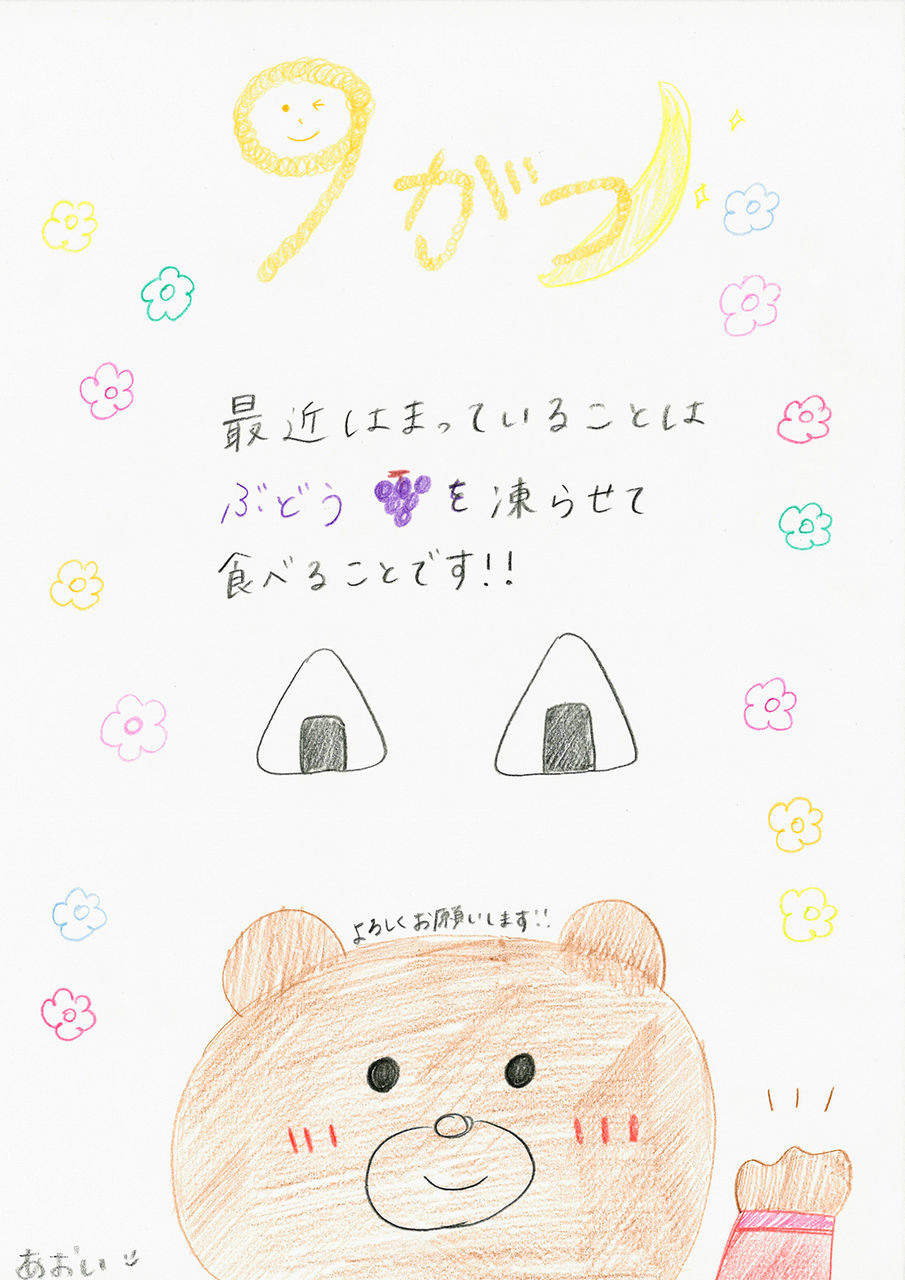 9がつ
最近はまっていることは
ぶどうを凍らせて
食べることです!!
よろしくお願いします!!
あおい